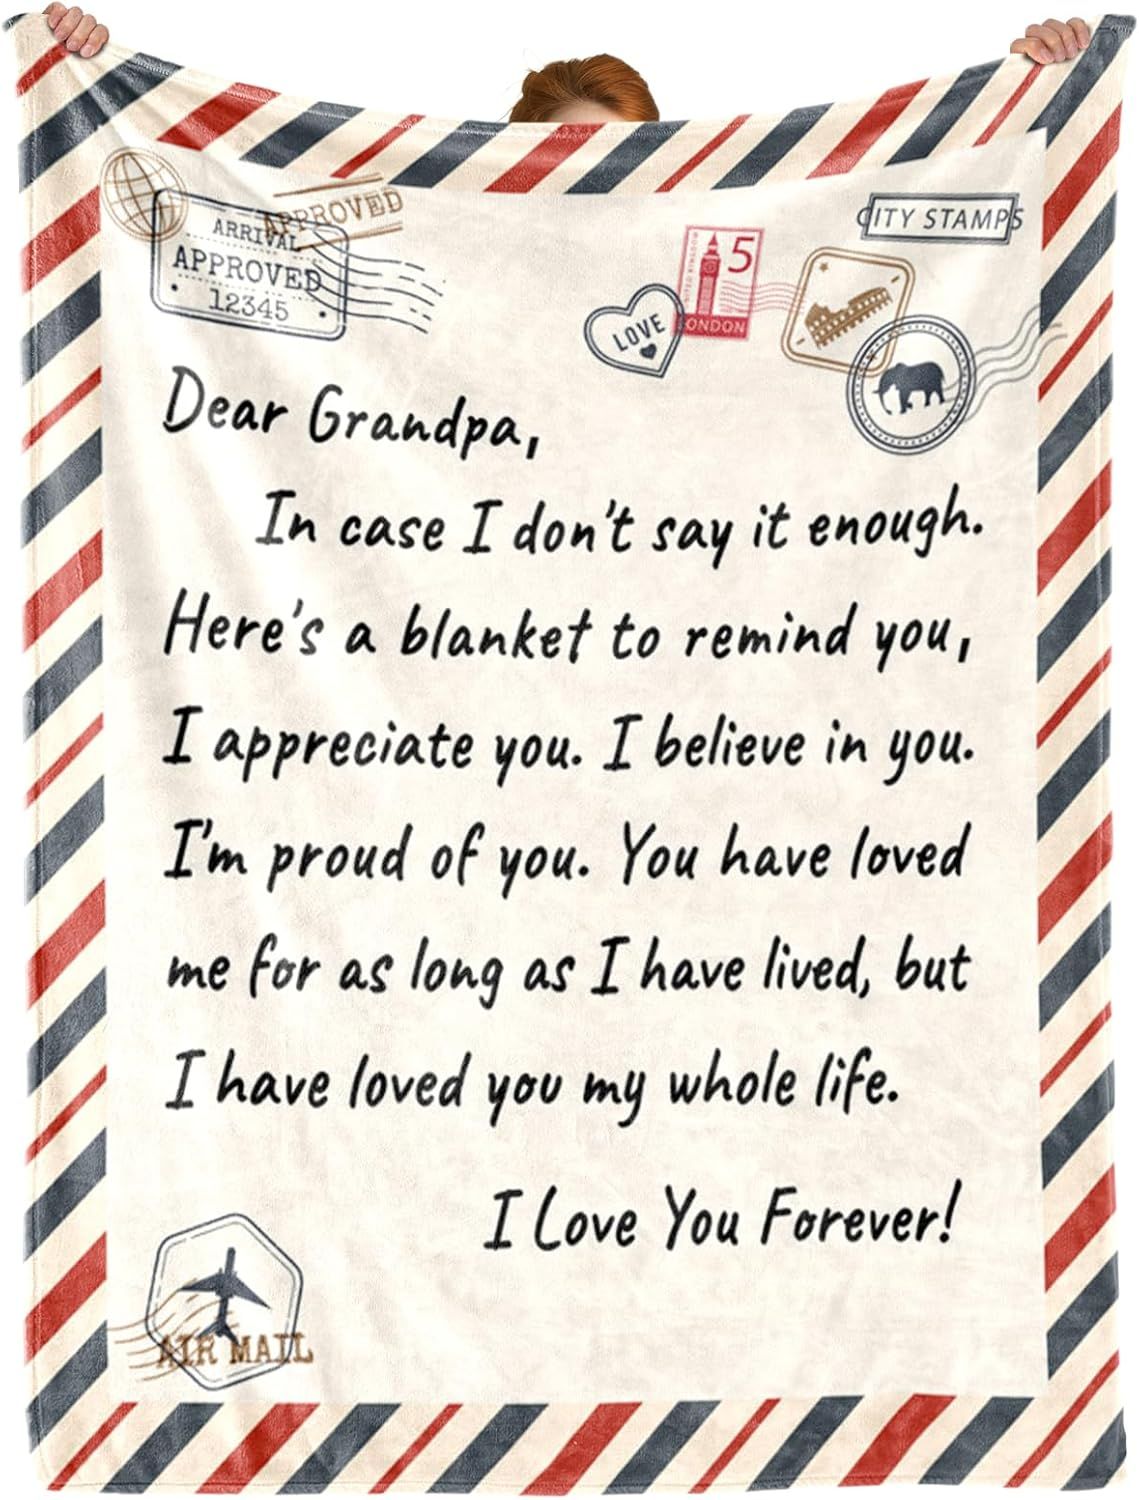 APPROVED
ARRIVAL
APPROVED
12345
CITY STAMPS
5
LONDON
LOVE
Dear Grandpa,
In case I don't say it enough.
Here's a blanket to remind you,
I appreciate you. I believe in you.
I'm proud of you. You have loved
me for as long as I have lived, but
I have loved you my whole life.
I Love You Forever!
AIR MAIL